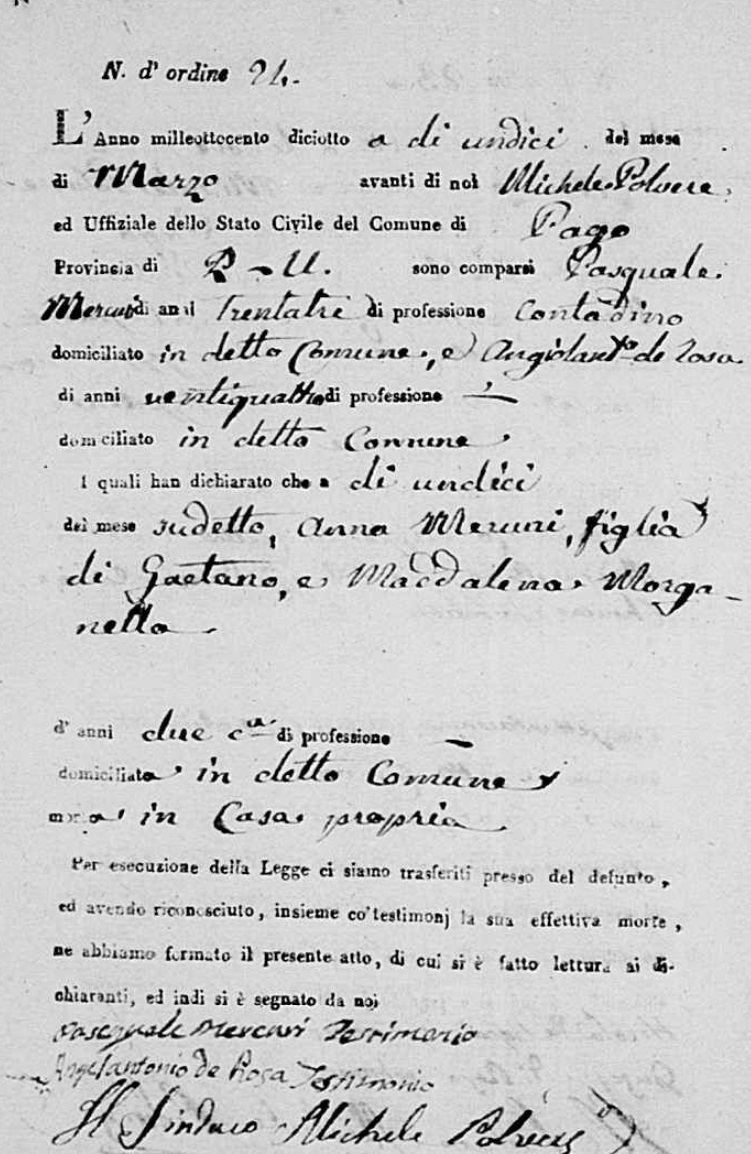 N. d' ordine 24.
L' Anno milleottocento diciotto a di undici del mese
di Marzo avanti di noi Michele Polvere
ed Uffiziale dello Stato Civile del Comune di Pago
Provincia di P - U. sono comparsi Pasquale
di anni Trentatre di professione Contadino
domiciliato in detto Comune, e Angiolant.o de Rosa
di anni ventiquattro di professione —
domiciliato in detto Comune
I quali han dichiarato che a di undici
del mese sudetto, Anna Mercuri, figlia
di Gaetano, e Maddalena Morga-
nella
d' anni due c.a di professione —
domiciliata in detto Comune
morta in Casa propria
Per esecuzione della Legge ci siamo trasferiti presso del defunto,
ed avendo riconosciuto, insieme co' testimonj la sua effettiva morte,
ne abbiamo formato il presente atto, di cui si è fatto lettura ai di-
chiaranti, ed indi si è segnato da noi
Pasquale Mercuri Testimonio
Angelantonio de Rosa Testimonio
Il Sindaco Michele Polvere